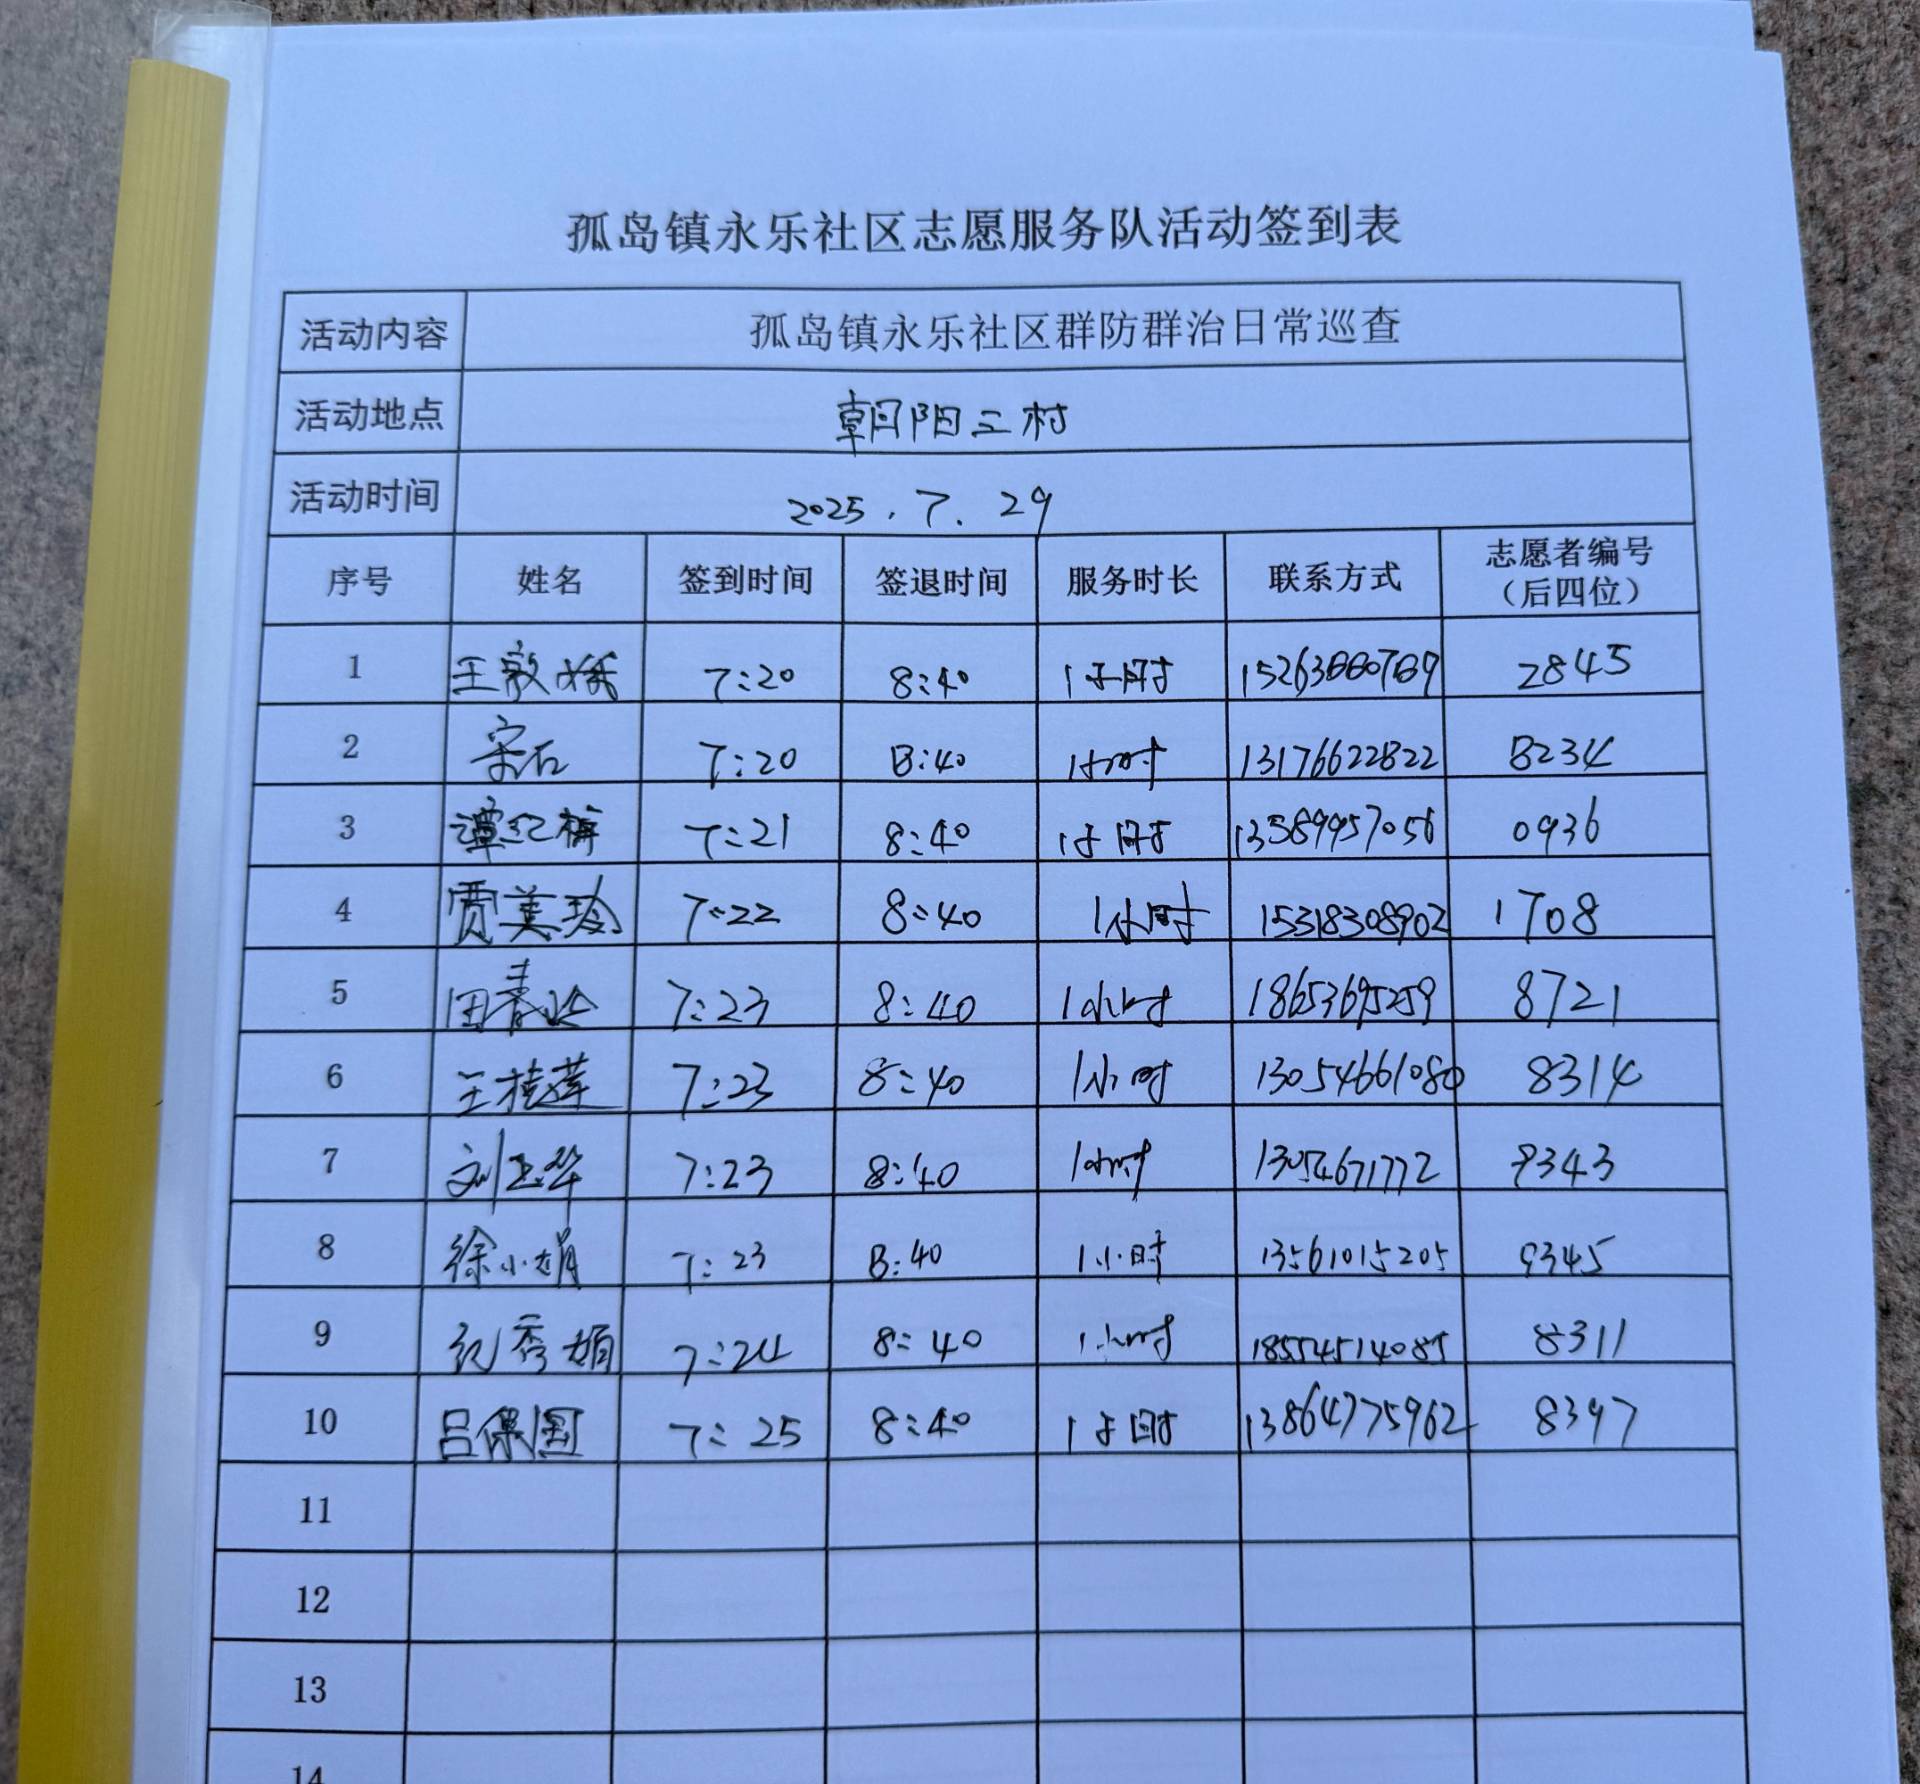 孤岛镇永乐社区志愿服务队活动签到表
活动内容 孤岛镇永乐社区群防群治日常巡查
活动地点 朝阳三村
活动时间 2025.7.29
序号 姓名 签到时间 签退时间 服务时长 联系方式 志愿者编号（后四位）
1 王敦娥 7:20 8:40 1小时 2845
2 宋石 7:20 8:40 1小时 13176622822 8234
3 谭红梅 7:21 8:40 1小时 13589957056 0936
4 贾美玲 7:22 8:40 1小时 15318308902 1708
5 田春 7:23 8:40 1小时 18653695259 8721
6 王桂莲 7:23 8:40 1小时 13054661080 8314
7 刘玉华 7:23 8:40 1小时 13054671772 9343
8 徐小娟 7:23 8:40 1小时 13561015205 9345
9 纪秀娟 7:24 8:40 1小时 18554514085 8311
10 吕保国 7:25 8:40 1小时 13864775962 8397
11
12
13
14